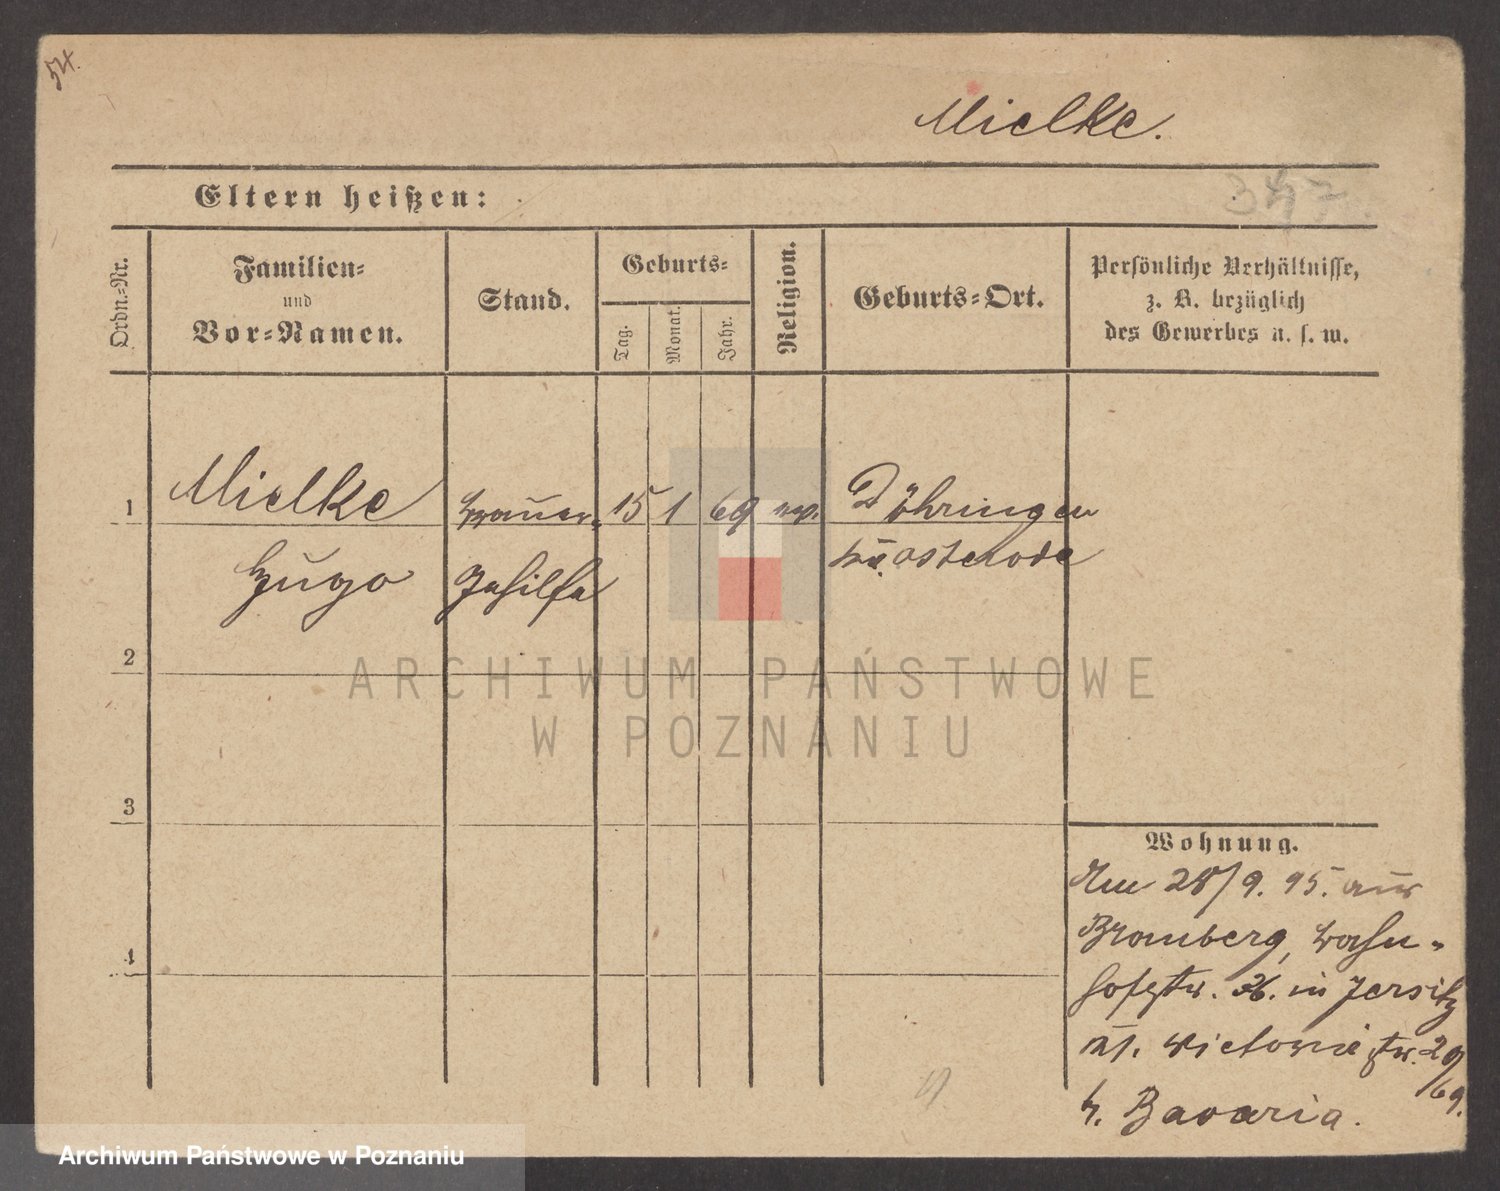 54.
Mielke.
Eltern heißen:
347
Ordn.-Nr.
Familien-
und
Vor-Namen.
Stand.
Geburts-
Tag.
Monat.
Jahr.
Religion.
Geburts-Ort.
Persönliche Verhältnisse,
z. B. bezüglich
des Gewerbes u. s. w.
1 Mielke Brauer- 15 1 69 ev. Döhringen
Hugo Gehilfe Kr. Osterode
2
3
4
Wohnung.
Am 28/9. 95. aus
Bromberg, Bahn-
hofstr. in Jersitz
Victoriastr. 29/69.
b. Bavaria.
ARCHIWUM PAŃSTWOWE
W POZNANIU
Archiwum Państwowe w Poznaniu